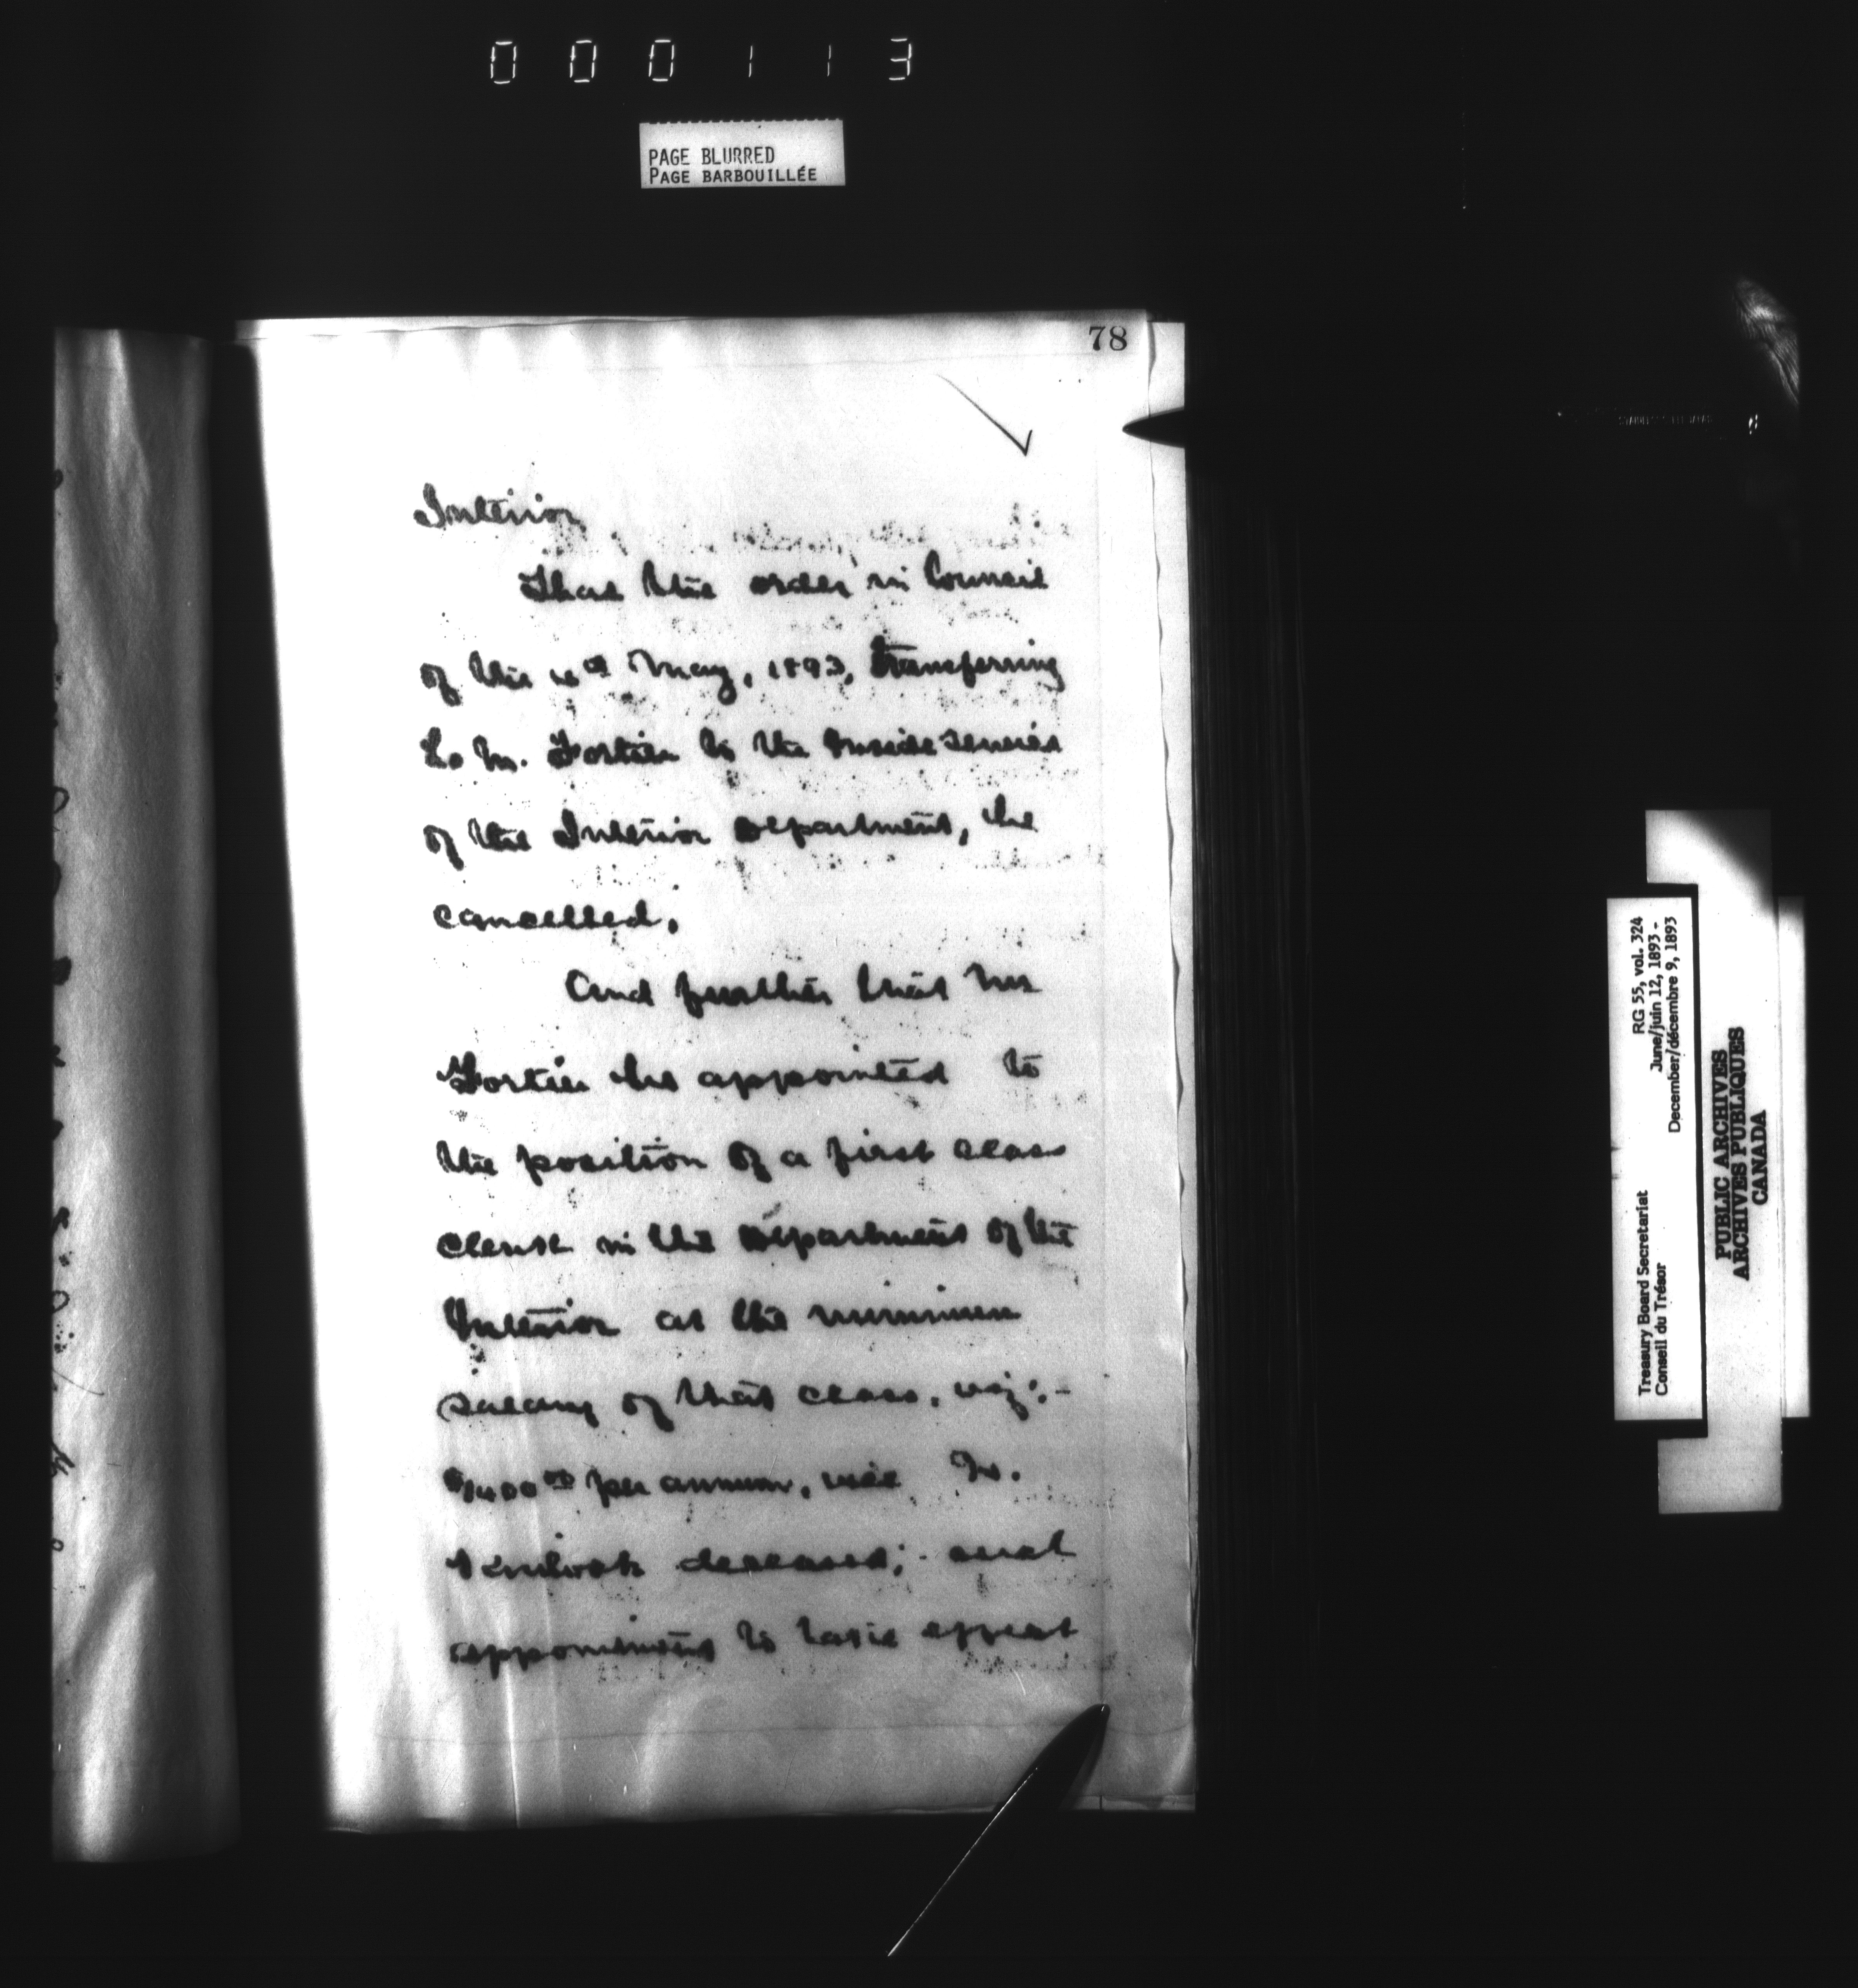 000113
PAGE BLURRED
PAGE BARBOUILLÉE
78
Interior
That the order in Council
of the May, 1893, transferring
L. M. Fortier to the Inside Service
of the Interior Department, be
cancelled.
And further that Mr
Fortier be appointed to
the position of a first class
clerk in the Department of the
Interior at the minimum
salary of that class, viz:-
$1400 00 per annum, vice
deceased; said
appointment to take effect
Treasury Board Secretariat RG 55, vol. 324
Conseil du Trésor June/juin 12, 1893 -
December/décembre 9, 1893
PUBLIC ARCHIVES
ARCHIVES PUBLIQUES
CANADA